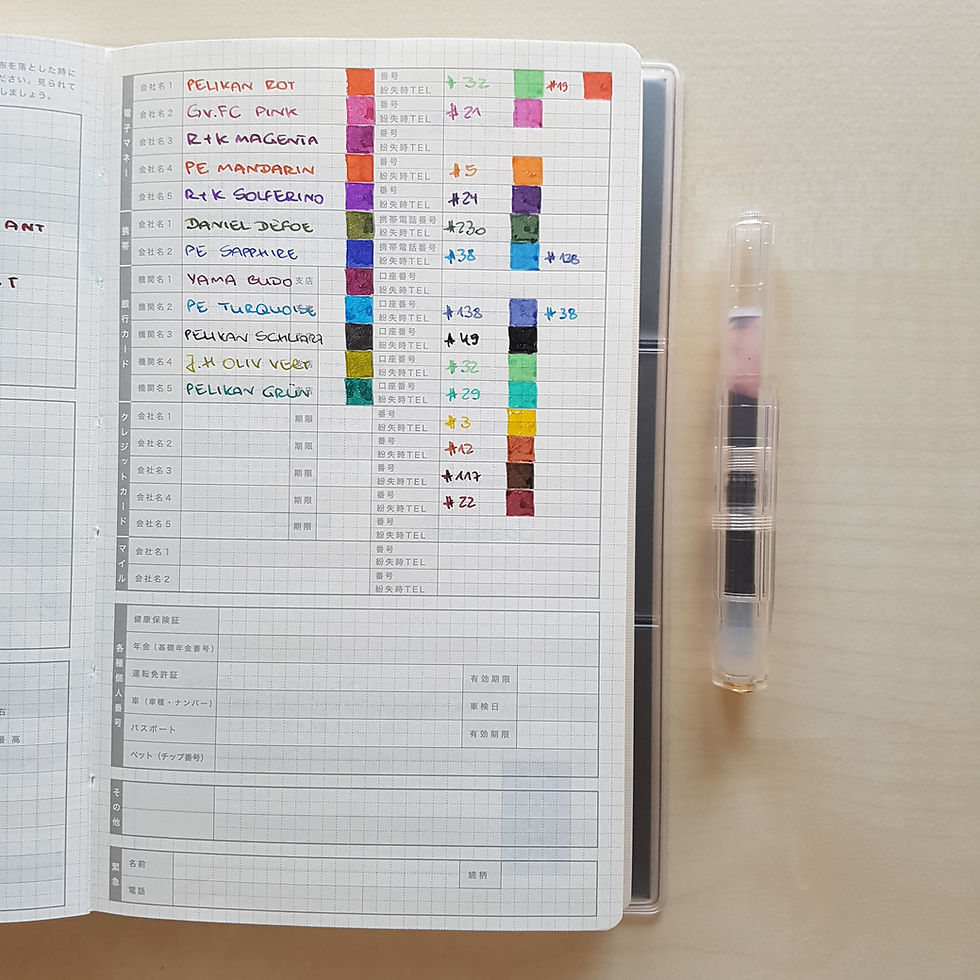 布を落とした時に
ださい。見られて
しましょう。
ANT
T
右
最 高
電子マネー
会社名1 PELIKAN ROT 番号 #32 #19
紛失時TEL
会社名2 GV.FC PINK 番号 #21
紛失時TEL
会社名3 R+K MAGENTA 番号
紛失時TEL
会社名4 PE MANDARIN 番号 #5
紛失時TEL
会社名5 R+K SOLFERINO 番号 #24
紛失時TEL
携帯
会社名1 DANIEL DEFOE 携帯電話番号 #230
紛失時TEL
会社名2 PE SAPPHIRE 携帯電話番号 #38 #138
紛失時TEL
銀行カード
機関名1 YAMA BUDO 支店 口座番号
紛失時TEL
機関名2 PE TURQUOISE 口座番号 #138 #38
紛失時TEL
機関名3 PELIKAN SCHWARZ 口座番号 #49
紛失時TEL
機関名4 J.H OLIV VERT 口座番号 #32
紛失時TEL
機関名5 PELIKAN GRÜN 支店 口座番号 #29
紛失時TEL
クレジットカード
会社名1 期限 番号 #3
紛失時TEL
会社名2 期限 番号 #12
紛失時TEL
会社名3 期限 番号 #117
紛失時TEL
会社名4 期限 番号 #22
紛失時TEL
会社名5 期限 番号
紛失時TEL
マイル
会社名1 番号
紛失時TEL
会社名2 番号
紛失時TEL
各種個人番号
健康保険証
年金(基礎年金番号)
運転免許証 有効期限
車(車種・ナンバー) 車検日
パスポート 有効期限
ペット(チップ番号)
その他
緊急
名前 続柄
電話